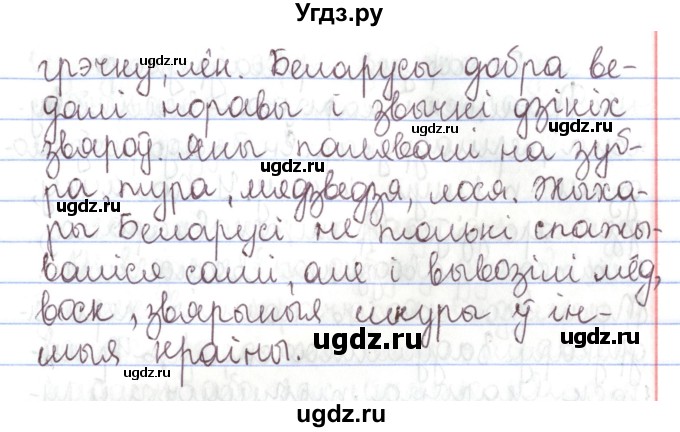 Угдз.ру
грэчку, лён. Беларусы добра ве-
далі норавы і звычкі дзікіх
звяроў. Яны палявалі на зуб-
ра, тура, мядзведзя, лося. Жыха-
ры Беларусі не толькі спажы-
валіся самі, але і вывозілі мёд,
воск, звярыныя шкуры ў ін-
шыя краіны.
ugdz.ru
ugdz.ru
ugdz.ru
ugdz.ru
ugdz.ru
ugdz.ru
ugdz.ru
ugdz.ru
ugdz.ru
ugdz.ru